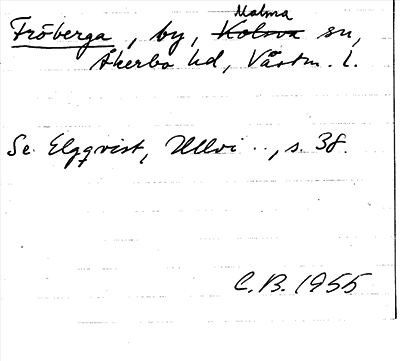 Malma
Fröberga, by, Kolsva sn,
Åkerbo hd, Västm. l.
Se Elgqvist, Ullvi .., s. 38.
C.B. 1955